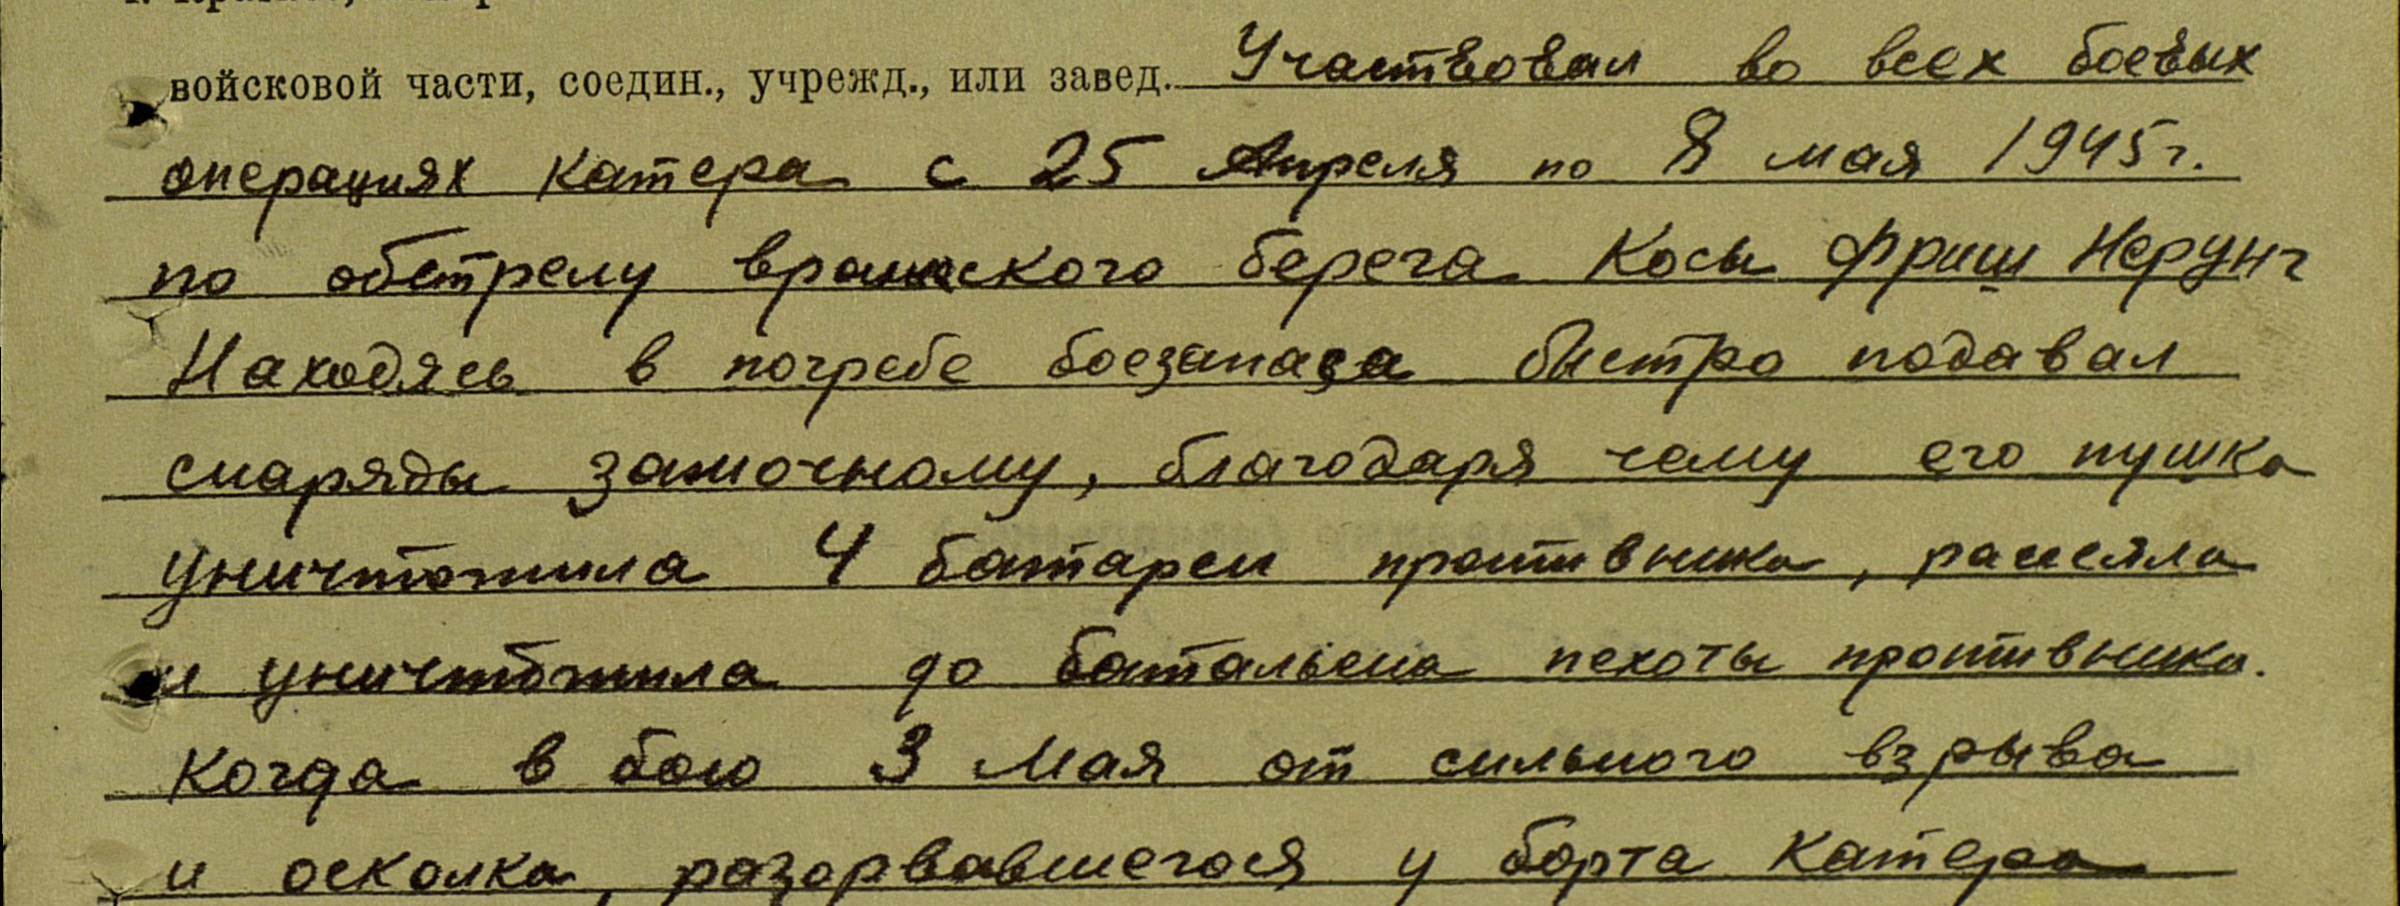 войсковой части, соедин., учрежд., или завед. Участвовал во всех боевых
операциях катера с 25 Апреля по 8 мая 1945г.
по обстрелу вражеского берега Косы Фриш Нерунг
Находясь в погребе боезапаса быстро подавал
снаряды замочному, благодаря чему его пушка
уничтожила 4 батареи противника, рассеяла
и уничтожила до батальена пехоты противника.
Когда в бою 3 Мая от сильного взрыва
и осколка, разорвавшегося у борта катера